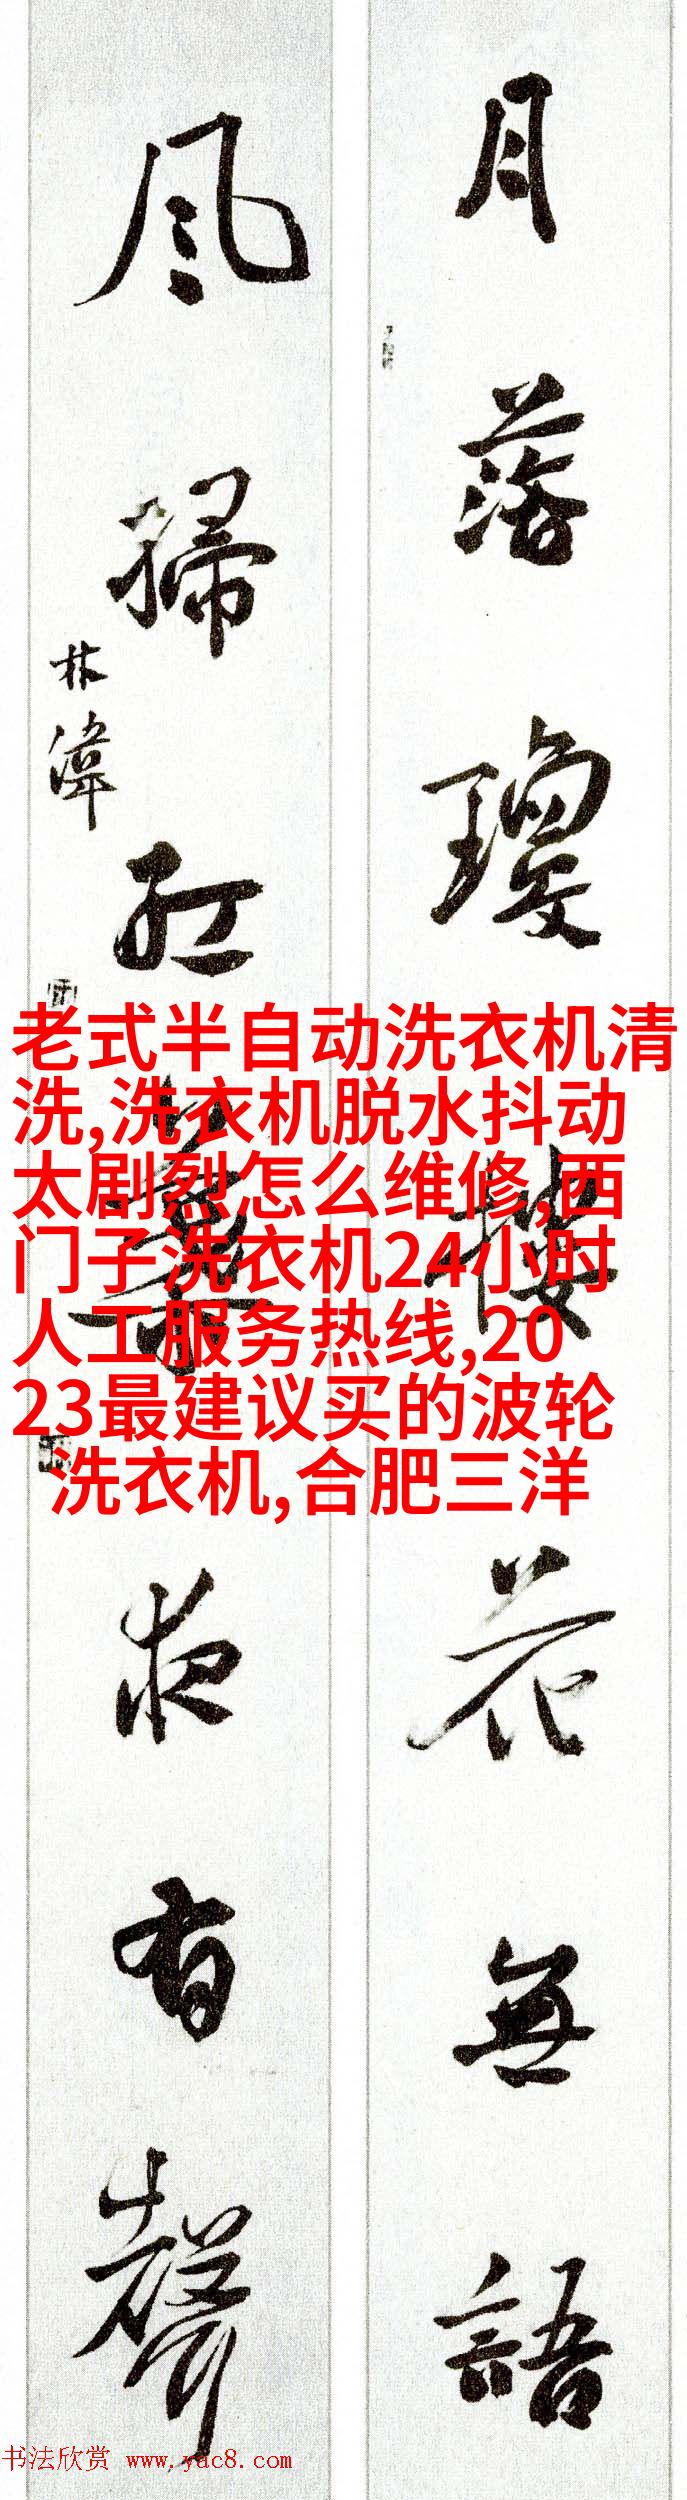 月落瓊樓花無語
风掃紅葉夜有聲
林
老式半自动洗衣机清
洗,洗衣机脱水抖动
太剧烈怎么维修,西
门子洗衣机24小时
人工服务热线,20
23最建议买的波轮
洗衣机,合肥三洋
书法欣赏 www.yac8.com